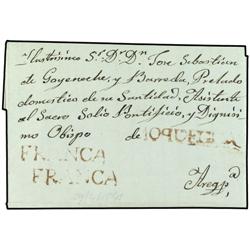 Ilustrisimo Sr. Dr. Dn. Jose Sebastian
de Goyeneche, y Barreda, Prelado
domestico de su Santidad, Asistente
al Sacro Solio Pontificio, y Dignisi
mo Obispo de
MOQUEGUA
FRANCA
FRANCA
Areqp.a